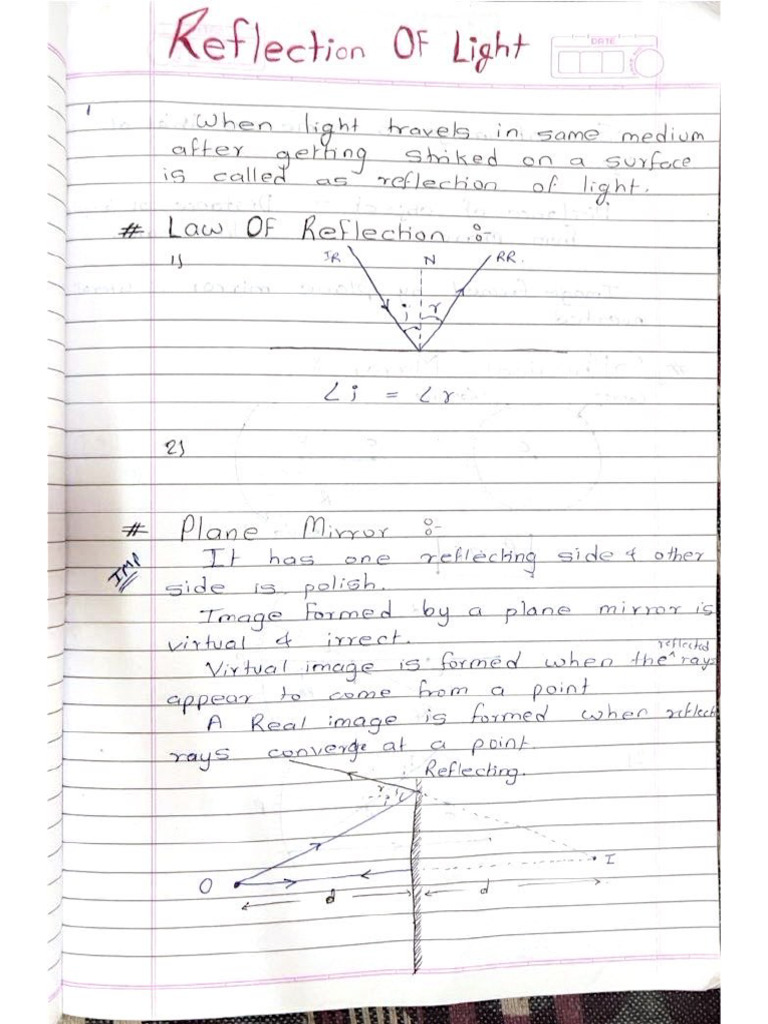 Reflection OF Light
DATE
1
When light travels in same medium
after getting striked on a surface
is called as reflection of light.
# Law OF Reflection :-
1) IR N RR.
i r
∠i = ∠r
2)
# Plane Mirror :-
IMP
It has one reflecting side & other
side is polish.
Image formed by a plane mirror is
virtual & irrect.
reflected
Virtual image is formed when the ^ rays
appear to come from a point
A Real image is formed when reflect
rays converge at a point.
Reflecting.
r i
I
O
d d